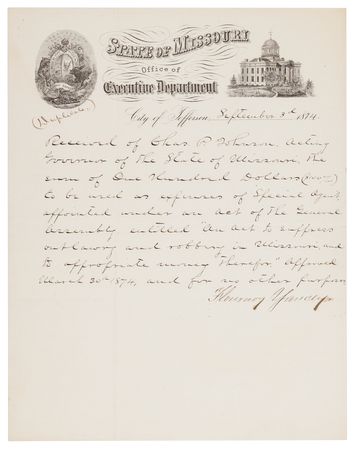 State of Missouri
Office of
Executive Department
(Duplicate)
City of Jefferson, September 3d 1874.
Received of Chas P. Johnson, Acting
Governor of the State of Missouri, the
sum of One Hundred Dollars
to be used as expenses of Special Agent,
appointed under an Act of the General
Assembly entitled "An Act to suppress
outlawry and robbery in Missouri, and
to appropriate money therefor" Approved
March 30th 1874, and for no other purpose
Flourney Yancey